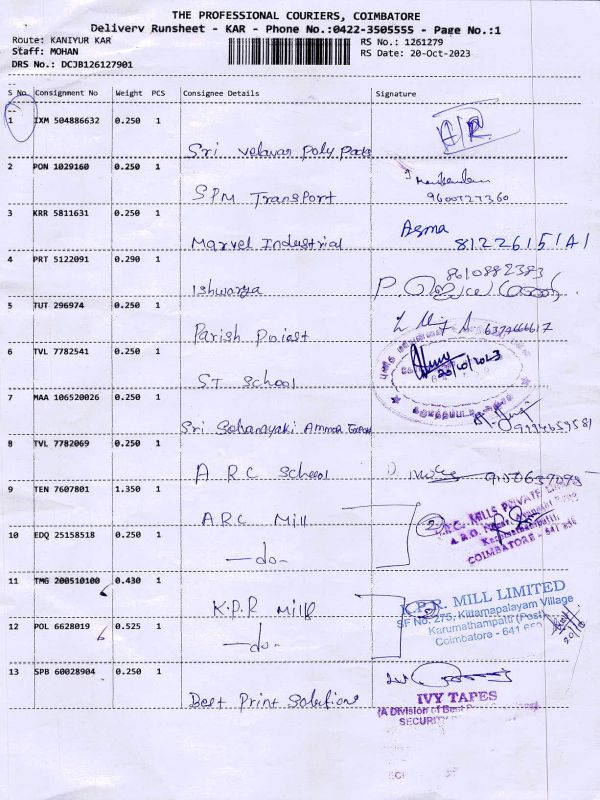 THE PROFESSIONAL COURIERS, COIMBATORE
Delivery Runsheet - KAR - Phone No.:0422-3505555 - Page No.:1
Route: KANIYUR KAR
Staff: MOHAN
DRS No.: DCJB126127901
RS No.: 1261279
RS Date: 20-Oct-2023
S No. Consignment No Weight PCS Consignee Details Signature
1 IXM 504886632 0.250 1
Sri Velavar Poly Packs
A/R
2 PON 1029160 0.250 1
SPM Transport
3 KRR 5811631 0.250 1
Marvel Industrial
Asma
4 PRT 5122091 0.290 1
Ishwarya
8610882383
5 TUT 296974 0.250 1
Parish Priest
6 TVL 7782541 0.250 1
ST School
20/10/2023
7 MAA 106520026 0.250 1
Sri Sahanayaki Ammar
8 TVL 7782069 0.250 1
A R C School
9 TEN 7607801 1.350 1
A.R.C Mill
2
MILLS PRIVATE
Karumathampatti,
COIMBATORE - 641
10 EDQ 25158518 0.250 1
-do-
11 TMG 200510100 0.430 1
K.P.R Mill
K.P.R. MILL LIMITED
SF No. 275, Kittampalayam Village
Karumathampatti (Post)
Coimbatore - 641
12 POL 6628019 0.525 1
-do-
13 SPB 60028904 0.250 1
Best Print Solutions
IVY TAPES
(A Division of Best
SECURITY